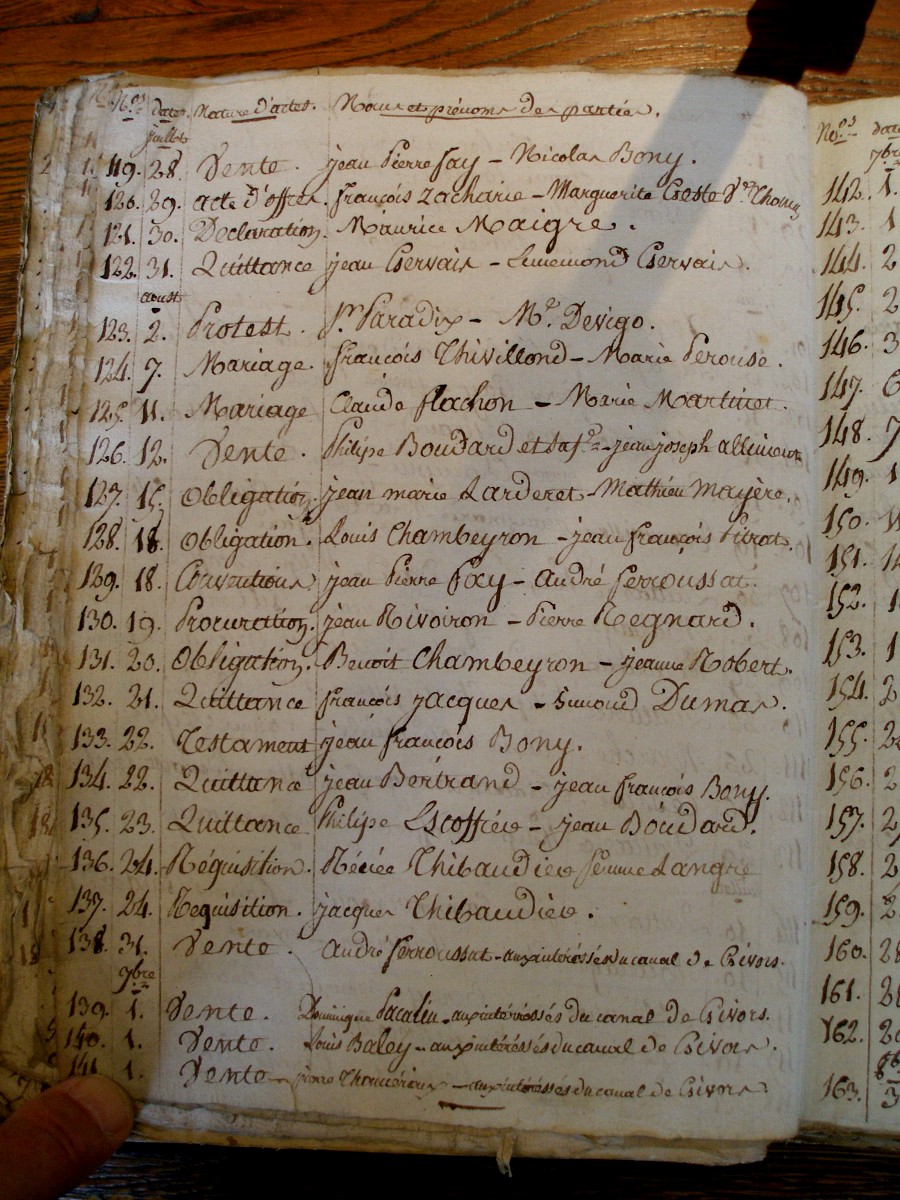 Nos dates. Nature d'actes. Noms et prénoms des parties.
juillet
119. 28. Vente. jean Pierre fay - Nicolas Bony.
120. 29. acte d'offres. françois Zacharie - Marguerite Ve Thomas
121. 30. Declaration. Maurice Maigre.
122. 31. Quittance jean Gervais - Gervais.
aoust
123. 2. Protest. Pre Paradix - Mr. Devigo.
124. 7. Mariage. françois Thivillond - Marie Perouse.
125. 11. Mariage Claude flachon - Marie Martinet.
126. 12. Vente. Philipe Boudard et sa fe - jean joseph
127. 15. Obligation. jean marie Larderet - Mathieu Mayère.
128. 18. Obligation. Louis Chambeyron - jean françois Pitrat.
129. 18. Conventions jean Pierre Fay - andré ferroussat.
130. 19. Procuration. jean Rivoiron - Pierre Regnard.
131. 20. Obligation. Benoit Chambeyron - jeanne Robert.
132. 21. Quittance françois jacques - Simond Dumas.
133. 22. Testament jean françois Bony.
134. 22. Quittance jean Bertrand - jean françois Bony.
135. 23. Quittance Philipe Escoffier - jean Boudard.
136. 24. Réquisition. Thibaudier femme Langre
137. 24. Requisition. jacques Thibaudier.
138. 31. Vente. andré ferroussat - aux intéréssés du canal de Givors.
7bre
139. 1. Vente. Dominique Pacalin - aux intéréssés du canal de Givors.
140. 1. Vente. Louis Baley - aux intéréssés du canal de Givors.
141. 1. Vente - pierre - aux intéréssés du canal de Givors.
Nos date
7bre
142. 1.
143. 1
144. 2
145. 2
146. 3
147. 6
148. 7
149. 1
150.
151.
152. 1
153. 1
154. 2
155. 2
156. 2
157. 2
158. 2
159. 2
160. 28
161. 2
162. 2
163. 3